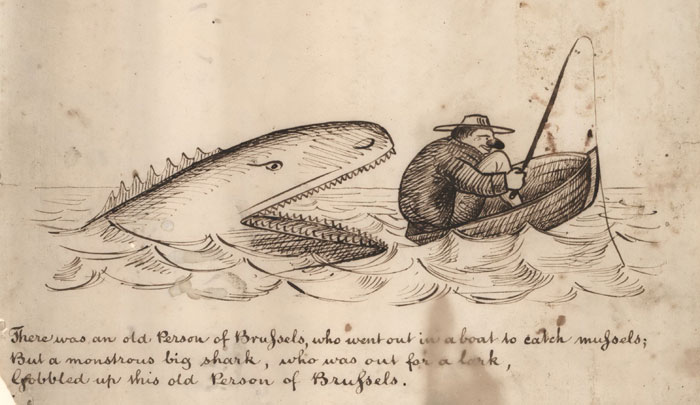 There was an old Person of Bruſsels, who went out in a boat to catch muſsels;
But a monstrous big shark, who was out for a lark,
Gobbled up this old Person of Bruſsels.